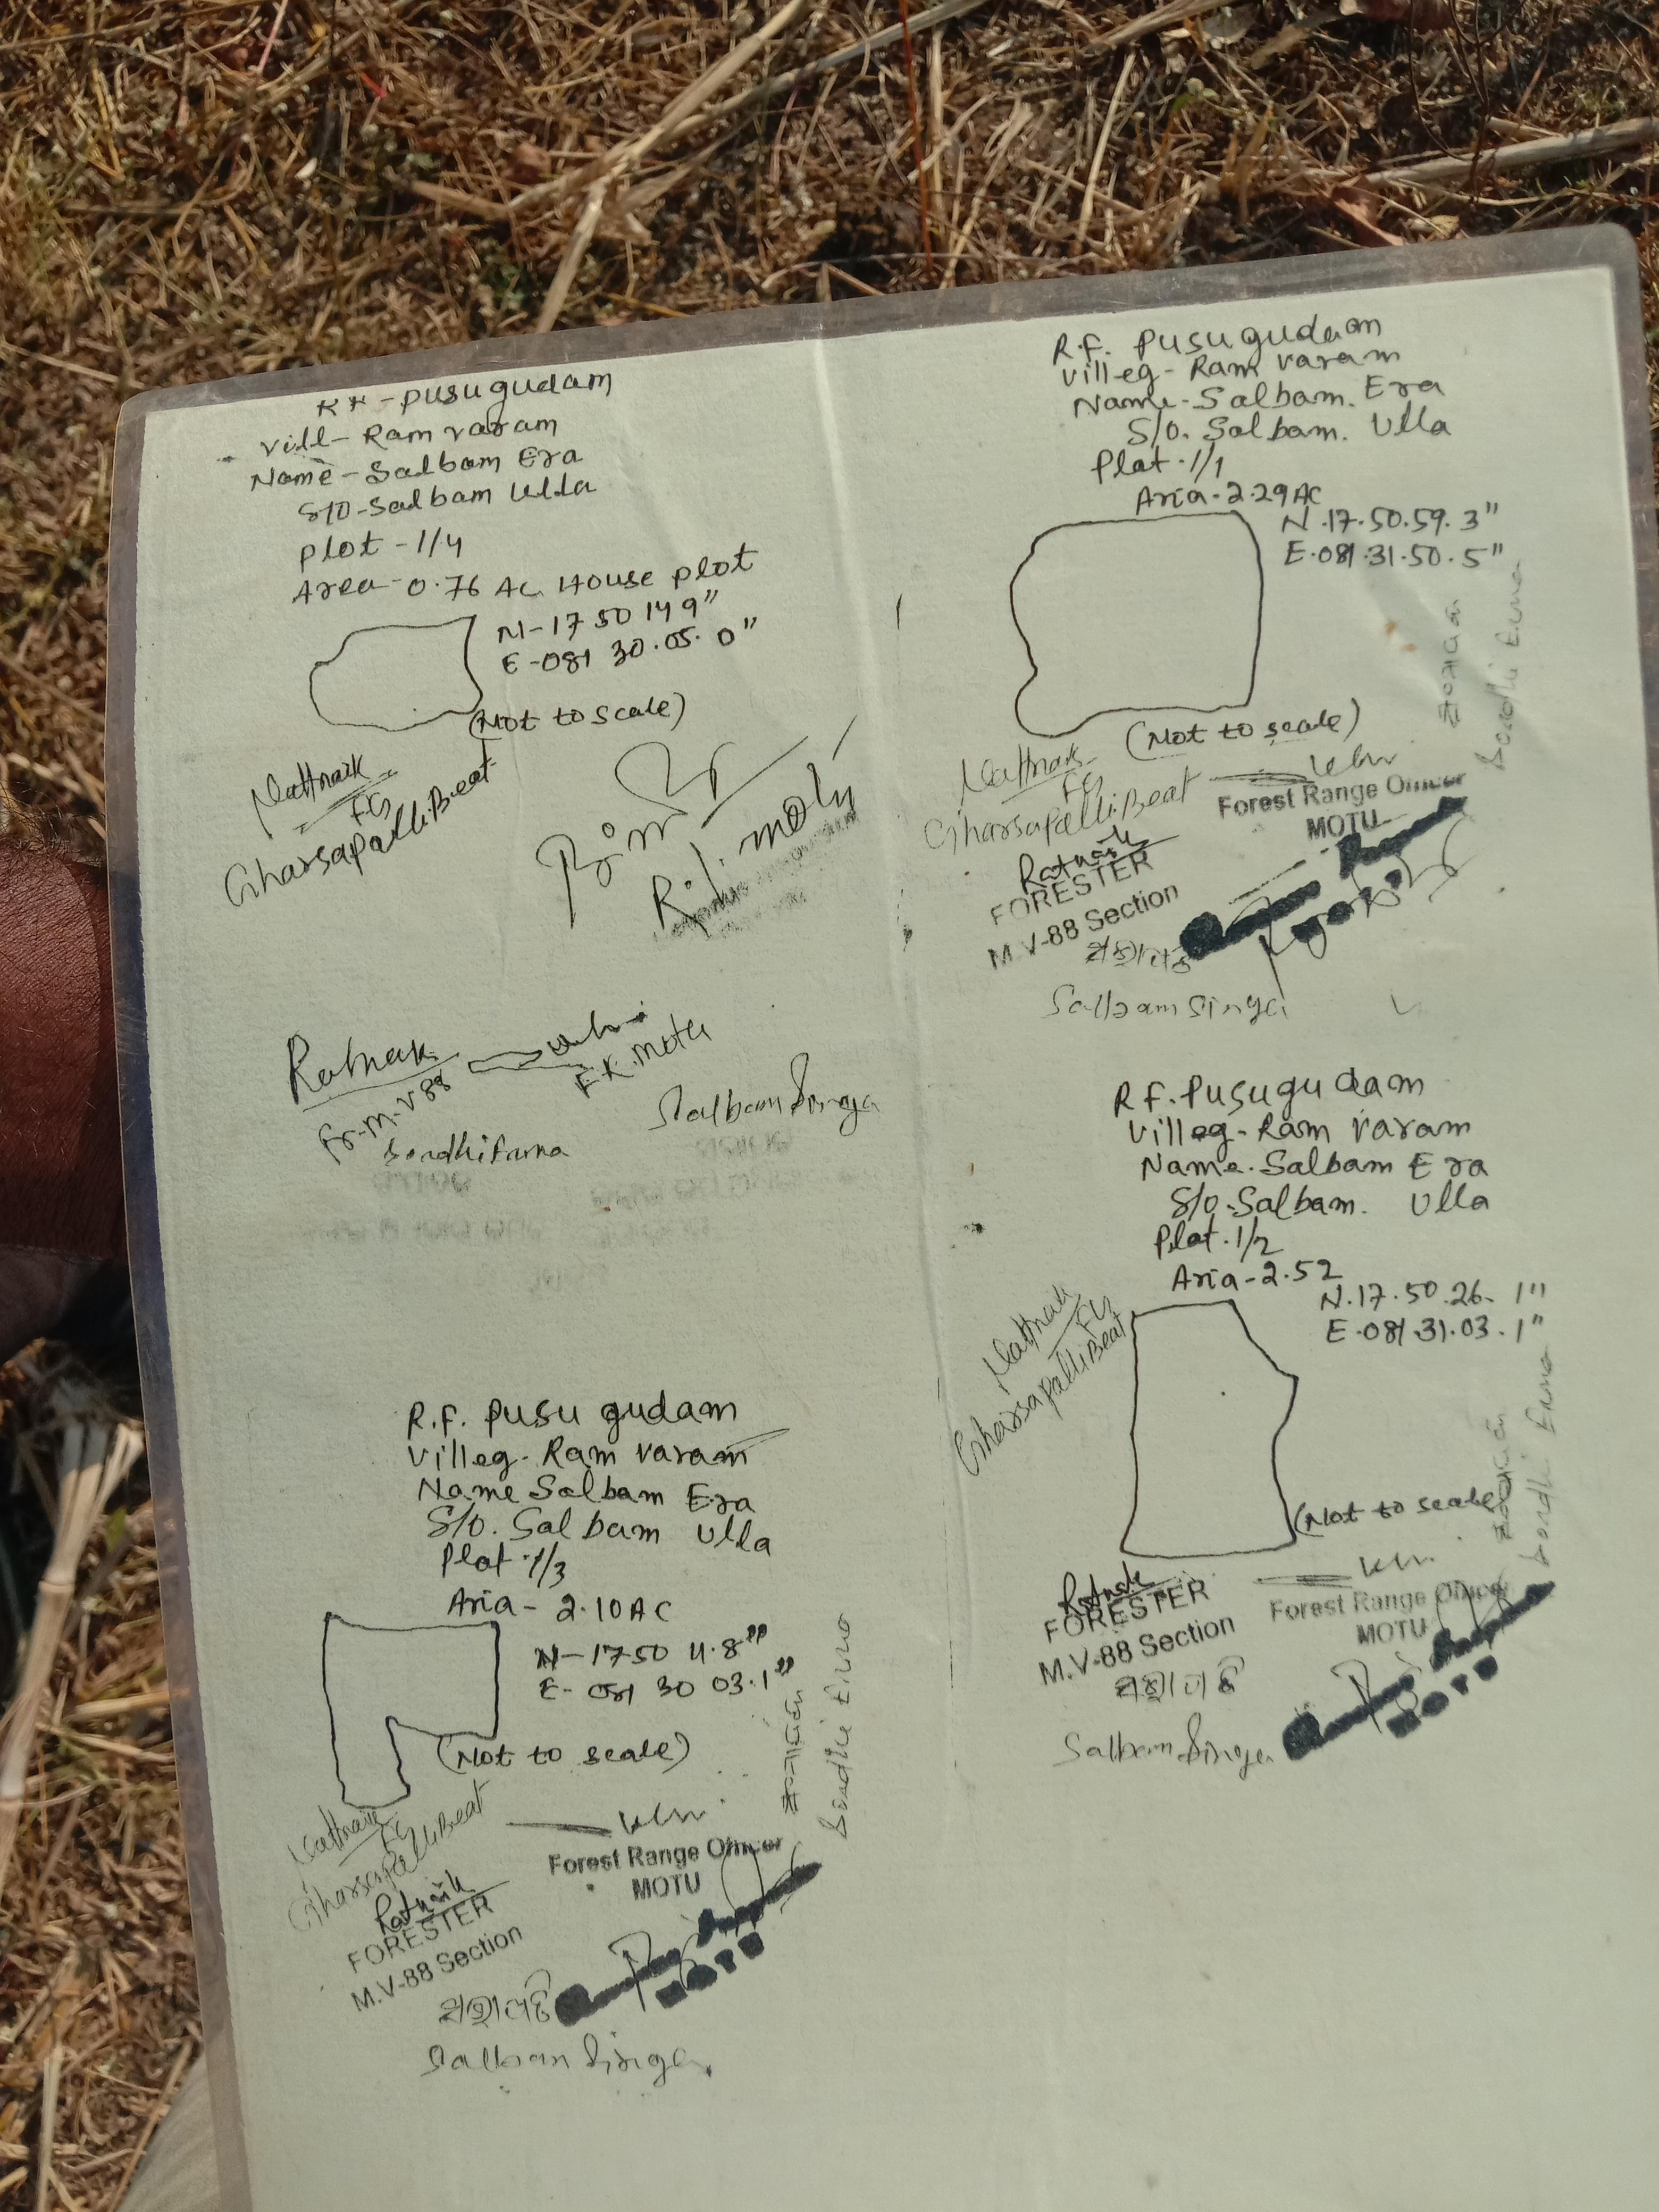 RF - Pusugudam
Vill - Ram varam
Name - Salbam Era
S/O - Salbam Ulla
Plot - 1/4
Area - 0.76 AC House plot
N - 17 50 14 9"
E - 081 30.05.0"
(Not to scale)
FG
Gharsapalli Beat
R.I. Motu
Fr. M.V 88
F.R. Motu
Salbam Singa
R.F. Pusugudam
Villeg - Ram varam
Name - Salbam. Era
S/O. Salbam. Ulla
Plat. 1/1
Aria - 2.29 AC
N.17.50.59.3"
E.081.31.50.5"
(Not to scale)
FG
Gharsapalli Beat
Forest Range Officer
MOTU
FORESTER
M.V-88 Section
Salbam Singa
R.F. Pusugudam
Villeg - Ram varam
Name. Salbam Era
S/O. Salbam. Ulla
Plat. 1/2
Aria - 2.52
N.17.50.26.1"
E.081.31.03.1"
FG
Gharsapalli Beat
(Not to scale)
Forest Range Officer
MOTU
FORESTER
M.V-88 Section
Salbam Singa
R.F. Pusu gudam
Villeg - Ram varam
Name Salbam Era
S/O. Salbam Ulla
Plat. 1/3
Aria - 2.10 AC
N - 17 50 11.8"
E - 081 30 03.1"
(Not to scale)
FG
Gharsapalli Beat
Forest Range Officer
MOTU
FORESTER
M.V-88 Section
Salbam Singa